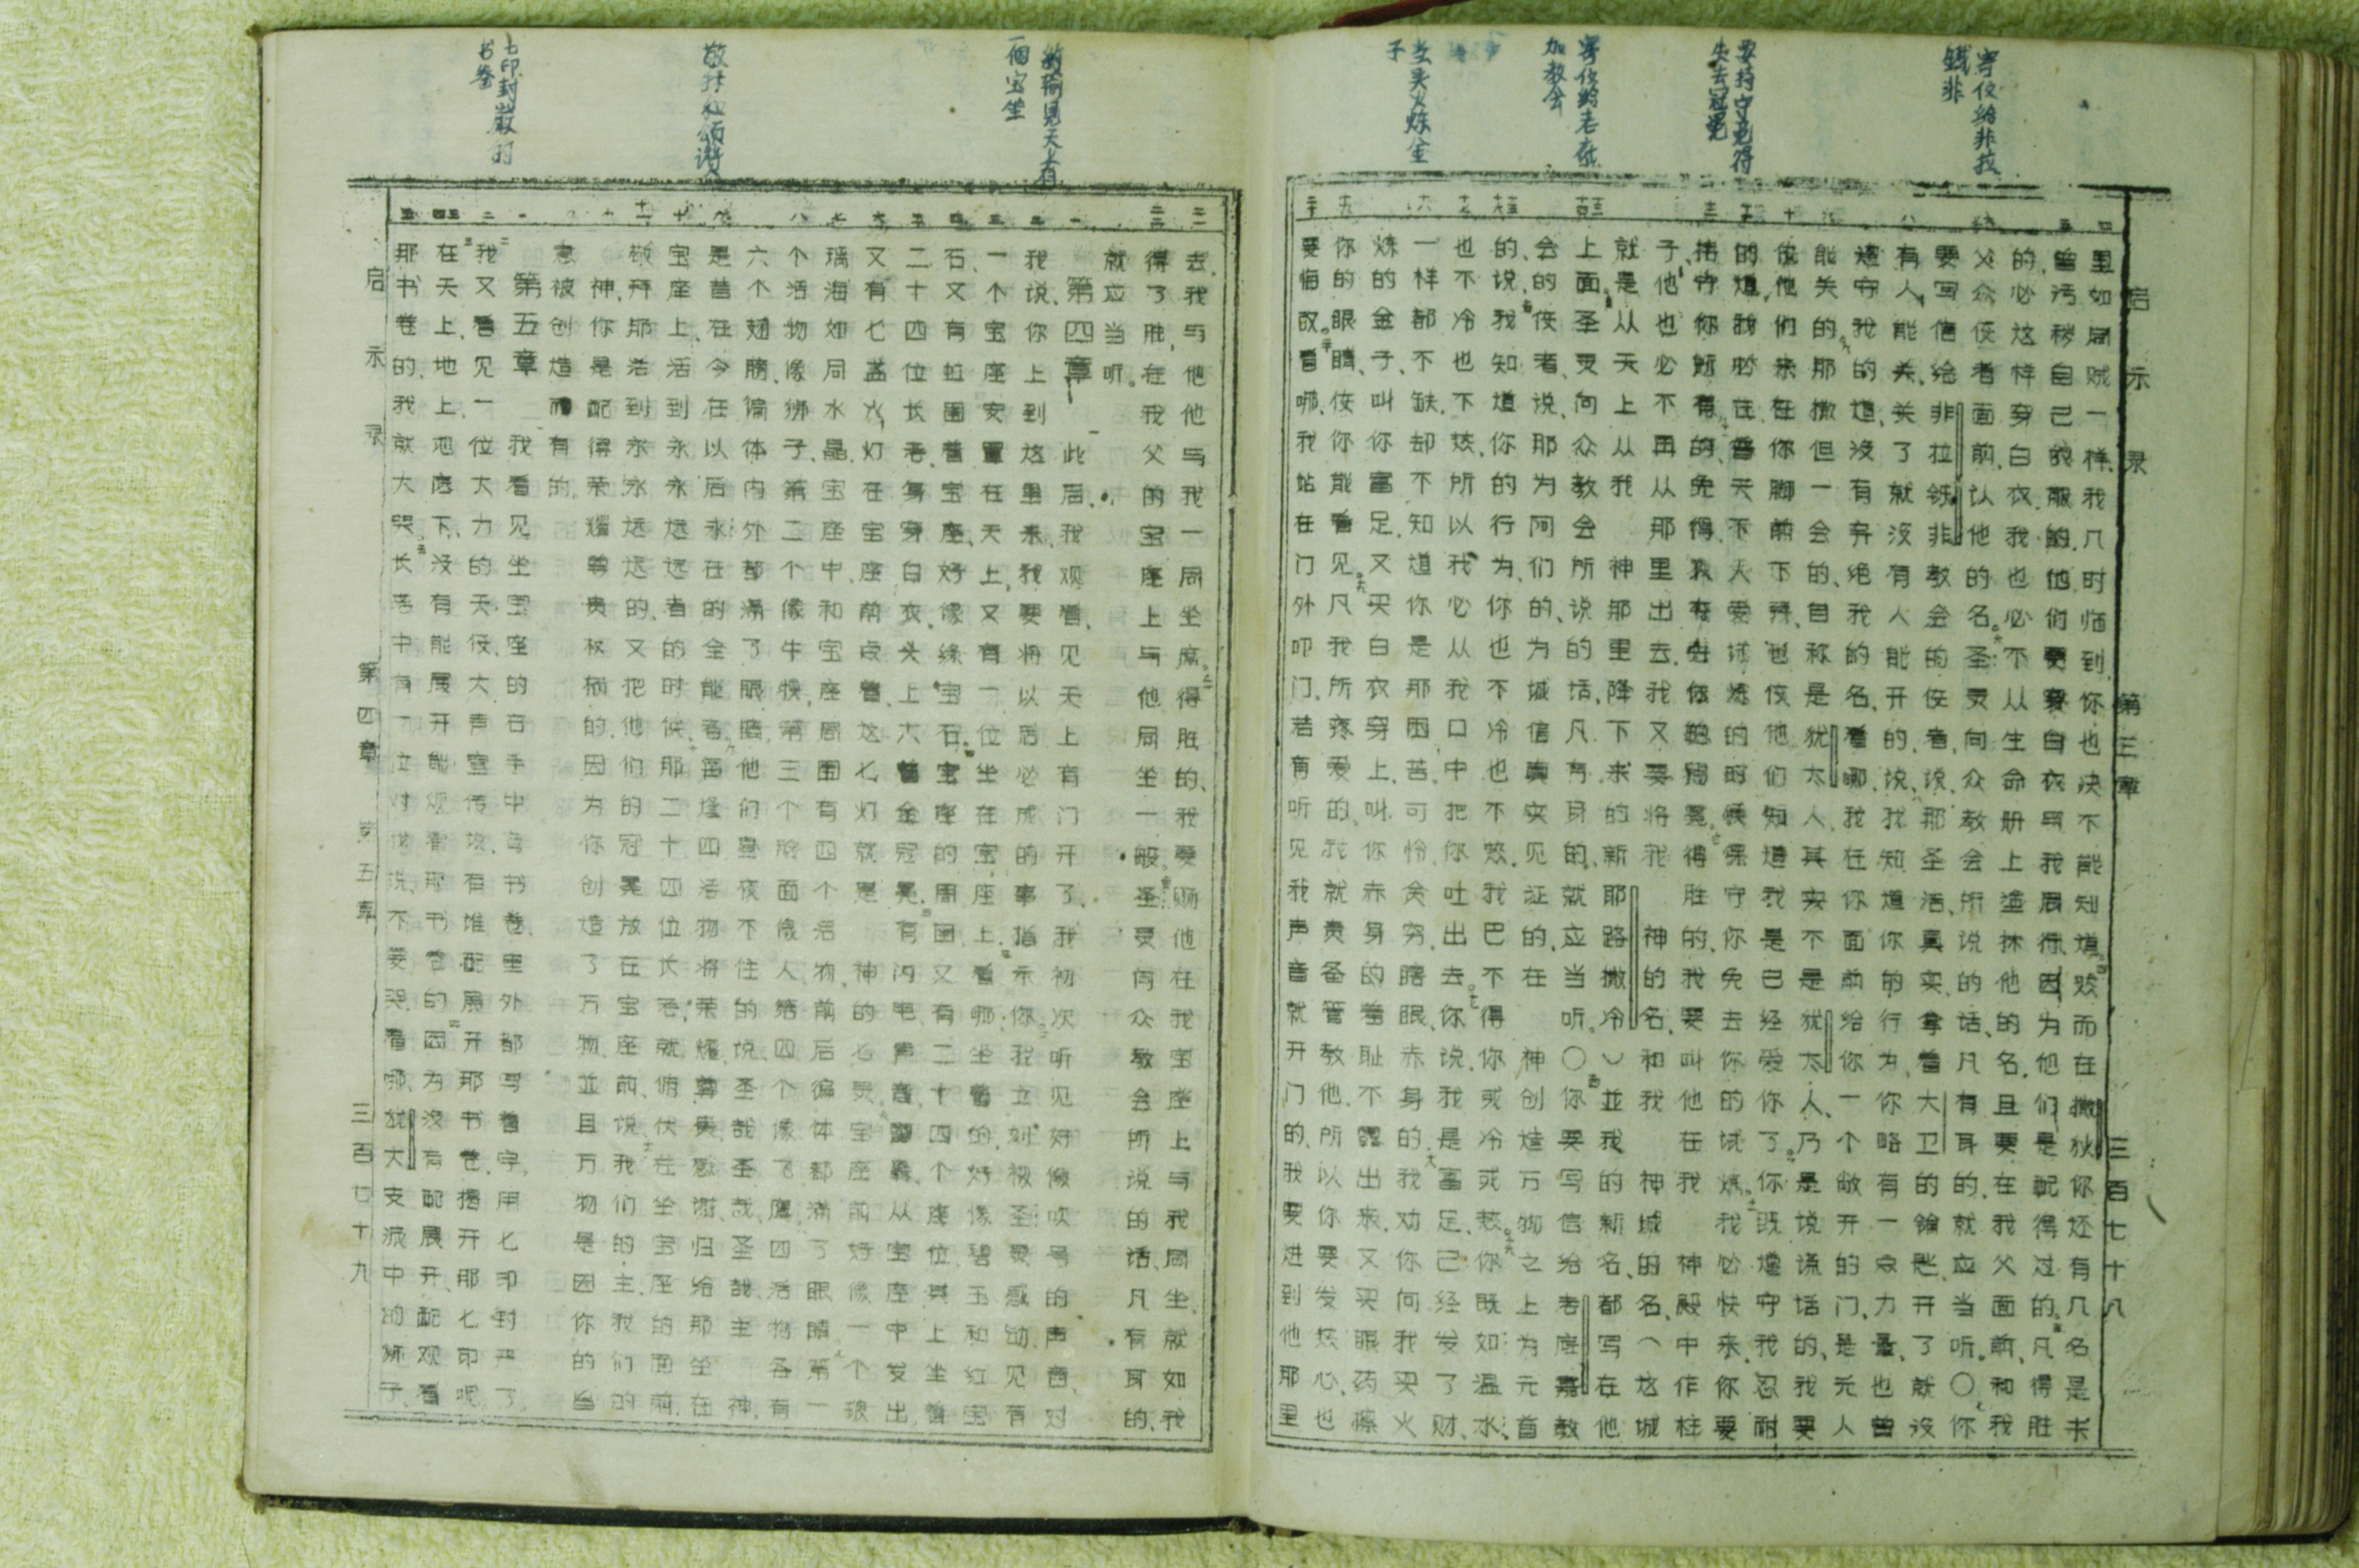 寄信给非拉
鐵非
要持守免得
失去冠冕
寄信给老底
加教会
火炼金
子
启示录 第三章 三百七十八
里如周贼一样、我几时临到你也决不能知道、然而在撒狄你还有几名是未
曾污秽自己的服的、他们要穿白衣与我周行、因为他们是配得过的。凡得胜
的、必这样穿白衣、我也必不从生命册上塗抹他的名、且要在我父面前、和我
父众使者面前、认他的名。圣灵向众教会所说的话、凡有耳的、就应当听。〇你
要写信给非拉铁非教会的使者、说、那圣洁真实、拿着大卫的钥匙、开了就没
有人能关、关了就没有人能开的、说、我知道你的行为、你略有一点力量、也曾
遵守我的道、没有弃绝我的名、看哪、我在你面前给你一个敞开的门、是无人
能关的、那撒但一会的、自称是犹太人、其实不是犹太人、乃是说谎话的、我要
使他们来在你脚前下拜、也使他们知道我是已经爱你了。你既遵守我忍耐
的道、我必在普天下人受试炼的时候、保守你免去你的试炼。我必快来、你要
持守你所有的、免得人夺去你的冠冕。得胜的、我要叫他在我神殿中作柱
子、他也必不再从那里出去、我又要将我神的名、和我神城的名、（这城
就是从天上从我神那里降下来的新耶路撒冷）並我的新名、都写在他
上面。圣灵向众教会所说的话、凡有耳的、就应当听。〇你要写信给老底嘉教
会的使者、说、那为阿们的、为诚信真实见证的、在神创造万物之上为元首
的、说、我知道你的行为、你也不冷也不热、我巴不得你或冷或热。你既如温水、
也不冷也不热、所以我必从我口中把你吐出去。你说、我是富足、己经发了财、
一样都不缺、却不知道你是那困苦、可怜、贫穷、瞎眼、赤身的、我劝你向我买火
炼的金子、叫你富足、又买白衣穿上、叫你赤身的羞耻不露出来、又买眼药擦
你的眼睛、使你能看见。凡我所疼爱的、我就责备管教他、所以你要发热心、也
要悔改。看哪、我站在门外叩门、若有听见我声音就开门的、我要进到他那里
約翰見天上有
一個宝坐
敬拜和頌讃
七印封嚴的
书卷
去、我与他他与我一周坐席。得胜的、我要赐他在我宝座上与我周坐、就如我
得了胜、在我父的宝座上与他周坐一般、圣灵向众教会所说的话、凡有耳的、
就应当听。
第四章 此后、我观看、见天上有门开了、我初次听见好像吹号的声音、对
我说、你上到这里来、我要将以后必成的事指示你。我立刻被圣灵感动、见有
一个宝座安置在天上、又有一位坐在宝座上、看哪、坐着的、好像碧玉和红宝
石、又有虹围着宝座、好像绿宝石。宝座的周围、又有二十四个座位、其上坐着
二十四位长老、身穿白衣、头上大着金冠冕。有闪电声音雷轰从宝座中发出
又有七盏火灯在宝座前点着、这七灯就是神的七灵。宝座前好像一个玻
璃海如周水晶、宝座中、和宝座周围有四个活物、前后徧体都满了眼睛。第一
个活物像狮子、第二个像牛犊、第三个脸面像人、第四个像飞鹰、四活物各有
六个翅膀、徧体内外都满了眼睛、他们昼夜不住的说、圣哉圣哉圣哉、主神、
是昔在今在以后永在的全能者。每逢四活物将荣耀尊贵感谢归给那坐在
宝座上、活到永永远远者的时候、那二十四位长老、就俯伏在坐宝座的面前、
敬拜那活到永永远远的、又把他们的冠冕放在宝座前、说、我们的主、我们的
神、你是配得荣耀尊贵权柄的、因为你创造了万物、並且万物是因你的旨
意被创造而有的。
第五章 我看见坐宝座的右手中有书卷、里外都写着字、用七印封严了
我又看见一位大力的天使、大声宣传说、有谁配展开那书卷、揭开那七印呢
在天上、地上、地底下、没有能展开能观看那书卷的、因为没有配展开配观看
那书卷的、我就大哭。长老中有一位对我说、不要哭、看哪、犹大支派中的狮子、
启示录 第四章 第五章 三百七十九